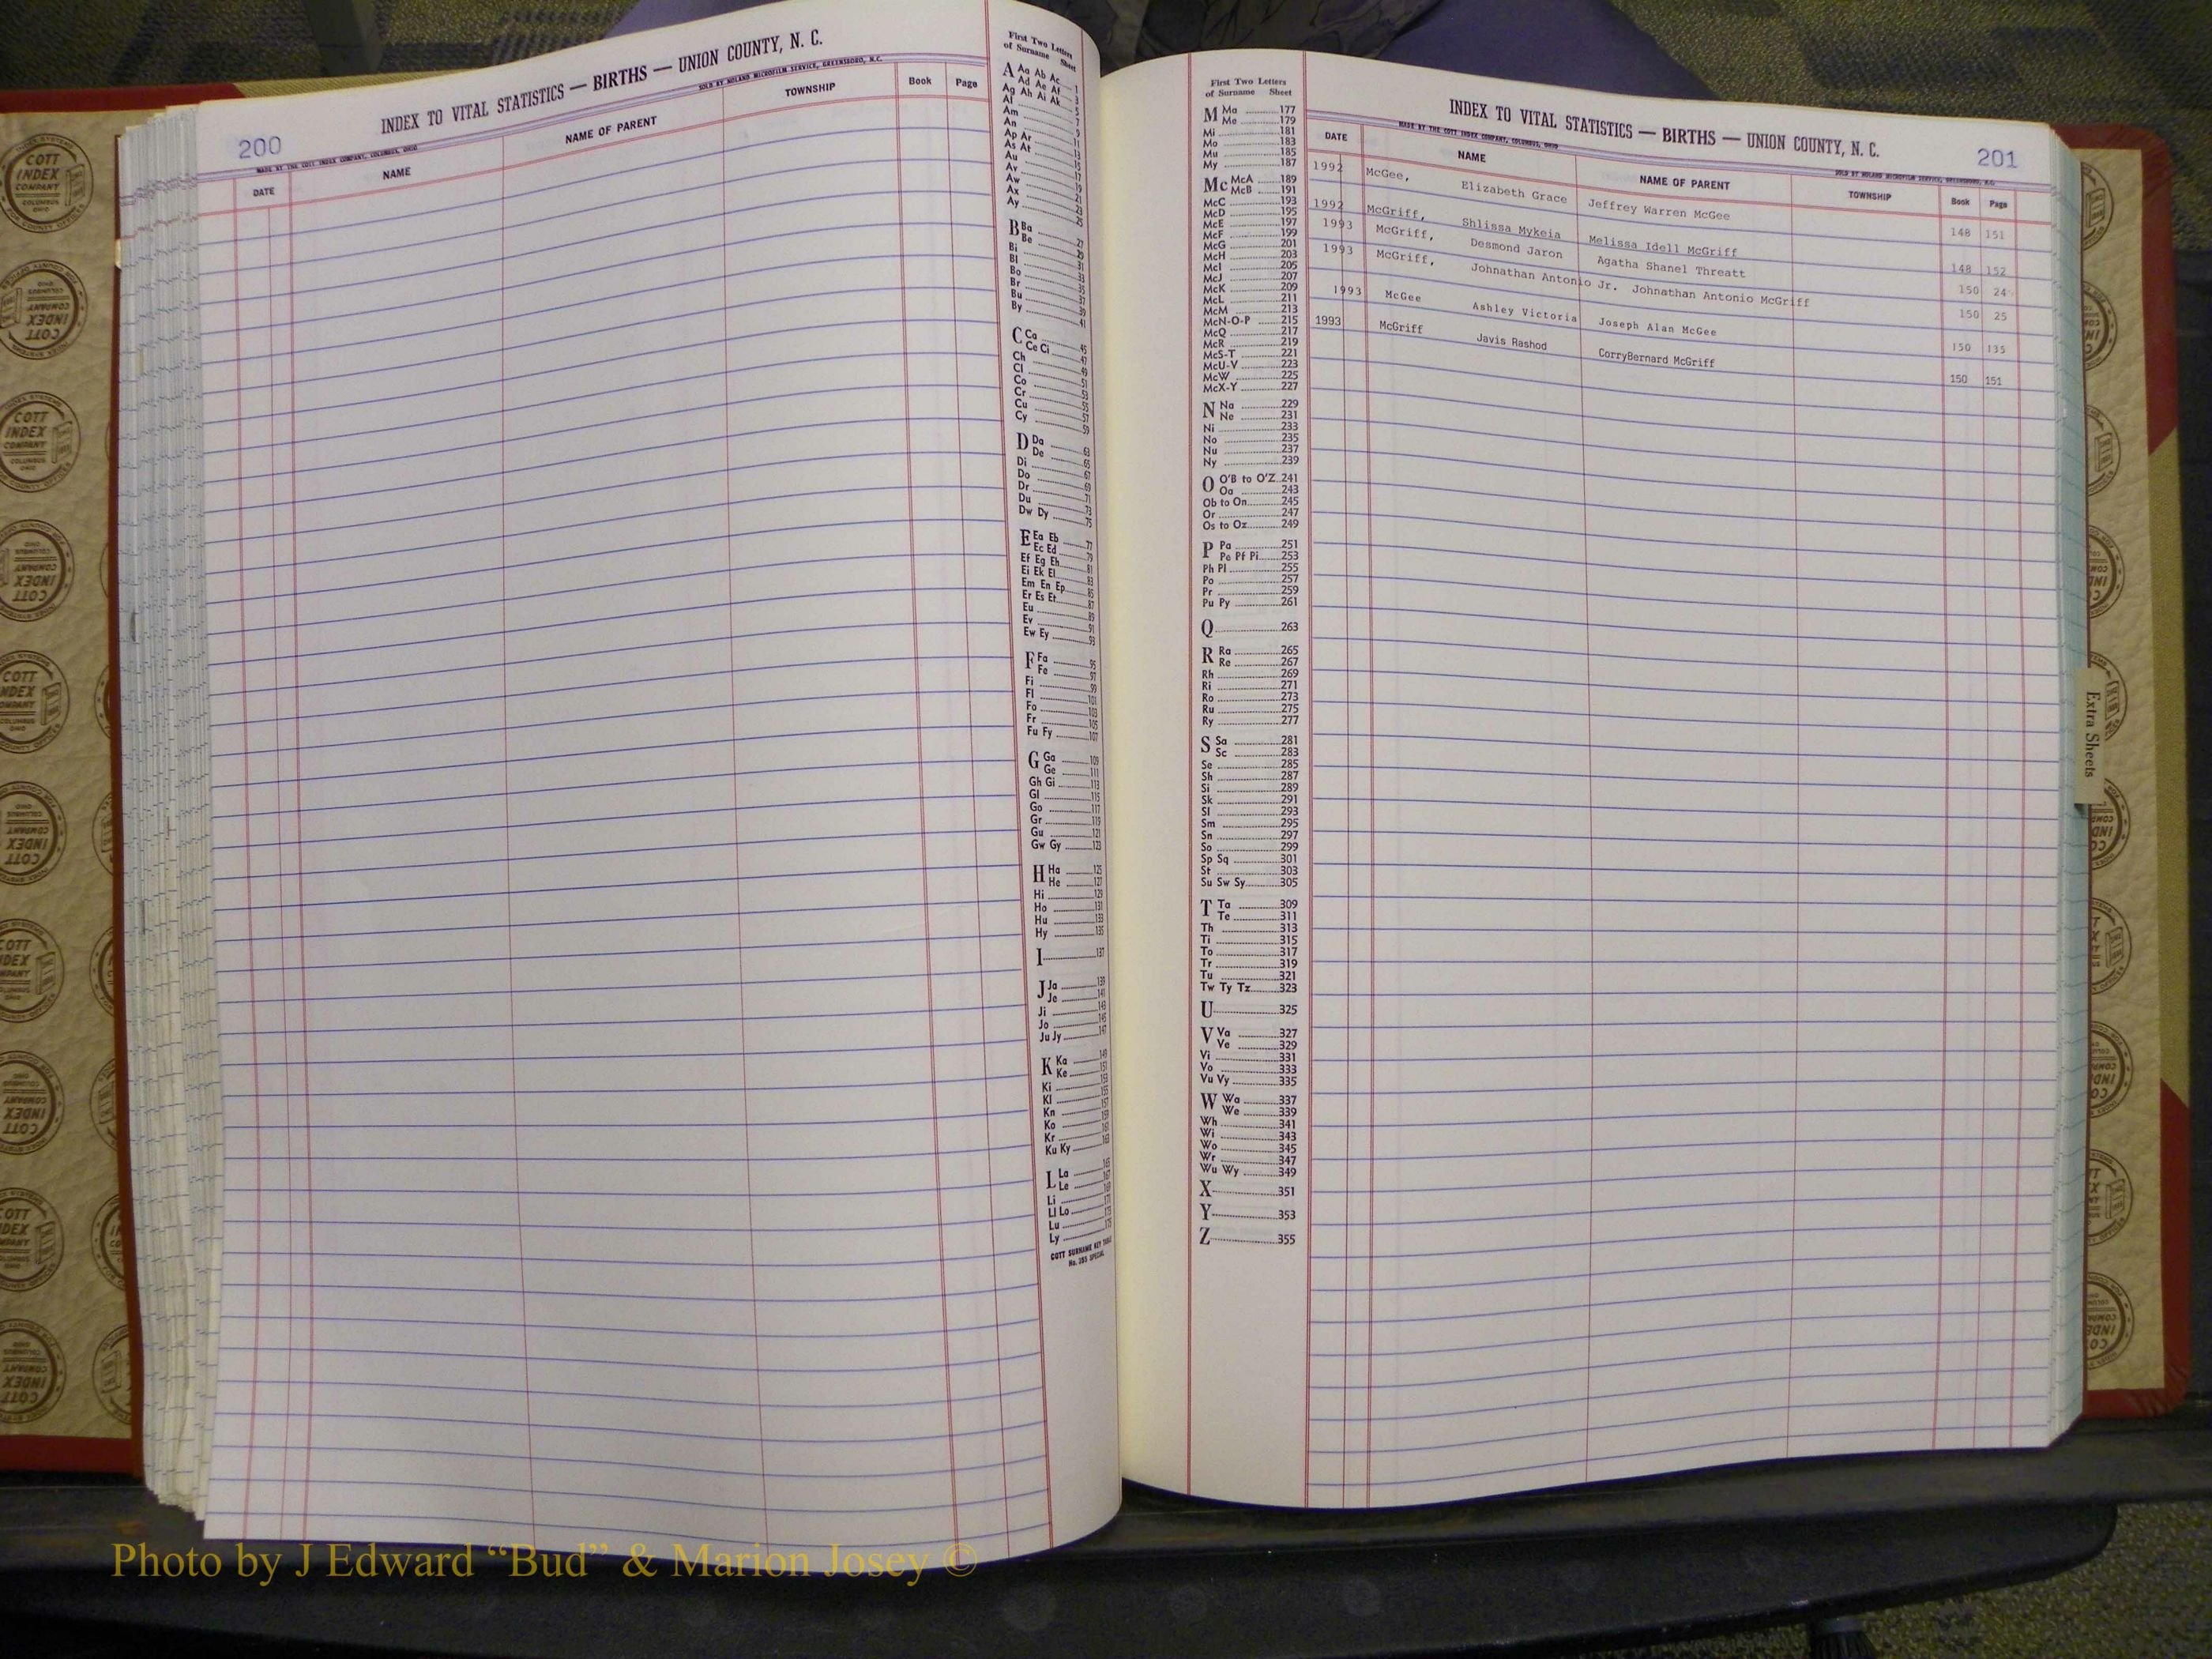 200
INDEX TO VITAL STATISTICS — BIRTHS — UNION COUNTY, N. C.
MADE BY THE COTT INDEX COMPANY, COLUMBUS, OHIO
SOLD BY NOLAND MICROFILM SERVICE, GREENSBORO, N.C.
DATE NAME NAME OF PARENT TOWNSHIP Book Page
First Two Letters
of Surname Sheet
A Aa Ab Ac 1
Ad Ae Af 3
Ag Ah Ai Ak 5
Al 7
Am 9
An 11
Ap Ar 13
As At 15
Au 17
Av 19
Aw 21
Ax 23
Ay 25
B Ba 27
Be 29
Bi 31
Bl 33
Bo 35
Br 37
Bu 39
By 41
C Ca 45
Ce Ci 47
Ch 49
Cl 51
Co 53
Cr 55
Cu 57
Cy 59
D Da 63
De 65
Di 67
Do 69
Dr 71
Du 73
Dw Dy 75
E Ea Eb 77
Ec Ed 79
Ef Eg Eh 81
Ei Ek El 83
Em En Ep 85
Er Es Et 87
Eu 89
Ev 91
Ew Ey 93
F Fa 95
Fe 97
Fi 99
Fl 101
Fo 103
Fr 105
Fu Fy 107
G Ga 109
Ge 111
Gh Gi 113
Gl 115
Go 117
Gr 119
Gu 121
Gw Gy 123
H Ha 125
He 127
Hi 129
Ho 131
Hu 133
Hy 135
I 137
J Ja 139
Je 141
Ji 143
Jo 145
Ju Jy 147
K Ka 149
Ke 151
Ki 153
Kl 155
Kn 157
Ko 159
Kr 161
Ku Ky 163
L La 165
Le
Li
Ll Lo
Lu
Ly
COTT SURNAME KEY TABLE
No. 285 SPECIAL
First Two Letters
of Surname Sheet
M Ma 177
Me 179
Mi 181
Mo 183
Mu 185
My 187
Mc McA 189
McB 191
McC 193
McD 195
McE 197
McF 199
McG 201
McH 203
McI 205
McJ 207
McK 209
McL 211
McM 213
McN-O-P 215
McQ 217
McR 219
McS-T 221
McU-V 223
McW 225
McX-Y 227
N Na 229
Ne 231
Ni 233
No 235
Nu 237
Ny 239
O O'B to O'Z 241
Oa 243
Ob to On 245
Or 247
Os to Oz 249
P Pa 251
Pe Pf Pi 253
Ph Pl 255
Po 257
Pr 259
Pu Py 261
Q 263
R Ra 265
Re 267
Rh 269
Ri 271
Ro 273
Ru 275
Ry 277
S Sa 281
Sc 283
Se 285
Sh 287
Si 289
Sk 291
Sl 293
Sm 295
Sn 297
So 299
Sp Sq 301
St 303
Su Sw Sy 305
T Ta 309
Te 311
Th 313
Ti 315
To 317
Tr 319
Tu 321
Tw Ty Tz 323
U 325
V Va 327
Ve 329
Vi 331
Vo 333
Vu Vy 335
W Wa 337
We 339
Wh 341
Wi 343
Wo 345
Wr 347
Wu Wy 349
X 351
Y 353
Z 355
INDEX TO VITAL STATISTICS — BIRTHS — UNION COUNTY, N. C.
201
MADE BY THE COTT INDEX COMPANY, COLUMBUS, OHIO
SOLD BY NOLAND MICROFILM SERVICE, GREENSBORO, N.C.
DATE NAME NAME OF PARENT TOWNSHIP Book Page
1992 McGee, Elizabeth Grace Jeffrey Warren McGee 148 151
1992 McGriff, Shlissa Mykeia Melissa Idell McGriff 148 152
1993 McGriff, Desmond Jaron Agatha Shanel Threatt 150 24
1993 McGriff, Johnathan Antonio Jr. Johnathan Antonio McGriff 150 25
1993 McGee Ashley Victoria Joseph Alan McGee 150 135
1993 McGriff Javis Rashod CorryBernard McGriff 150 151
Extra Sheets
COTT INDEX COMPANY COLUMBUS OHIO
Photo by J Edward “Bud” & Marion Josey ©